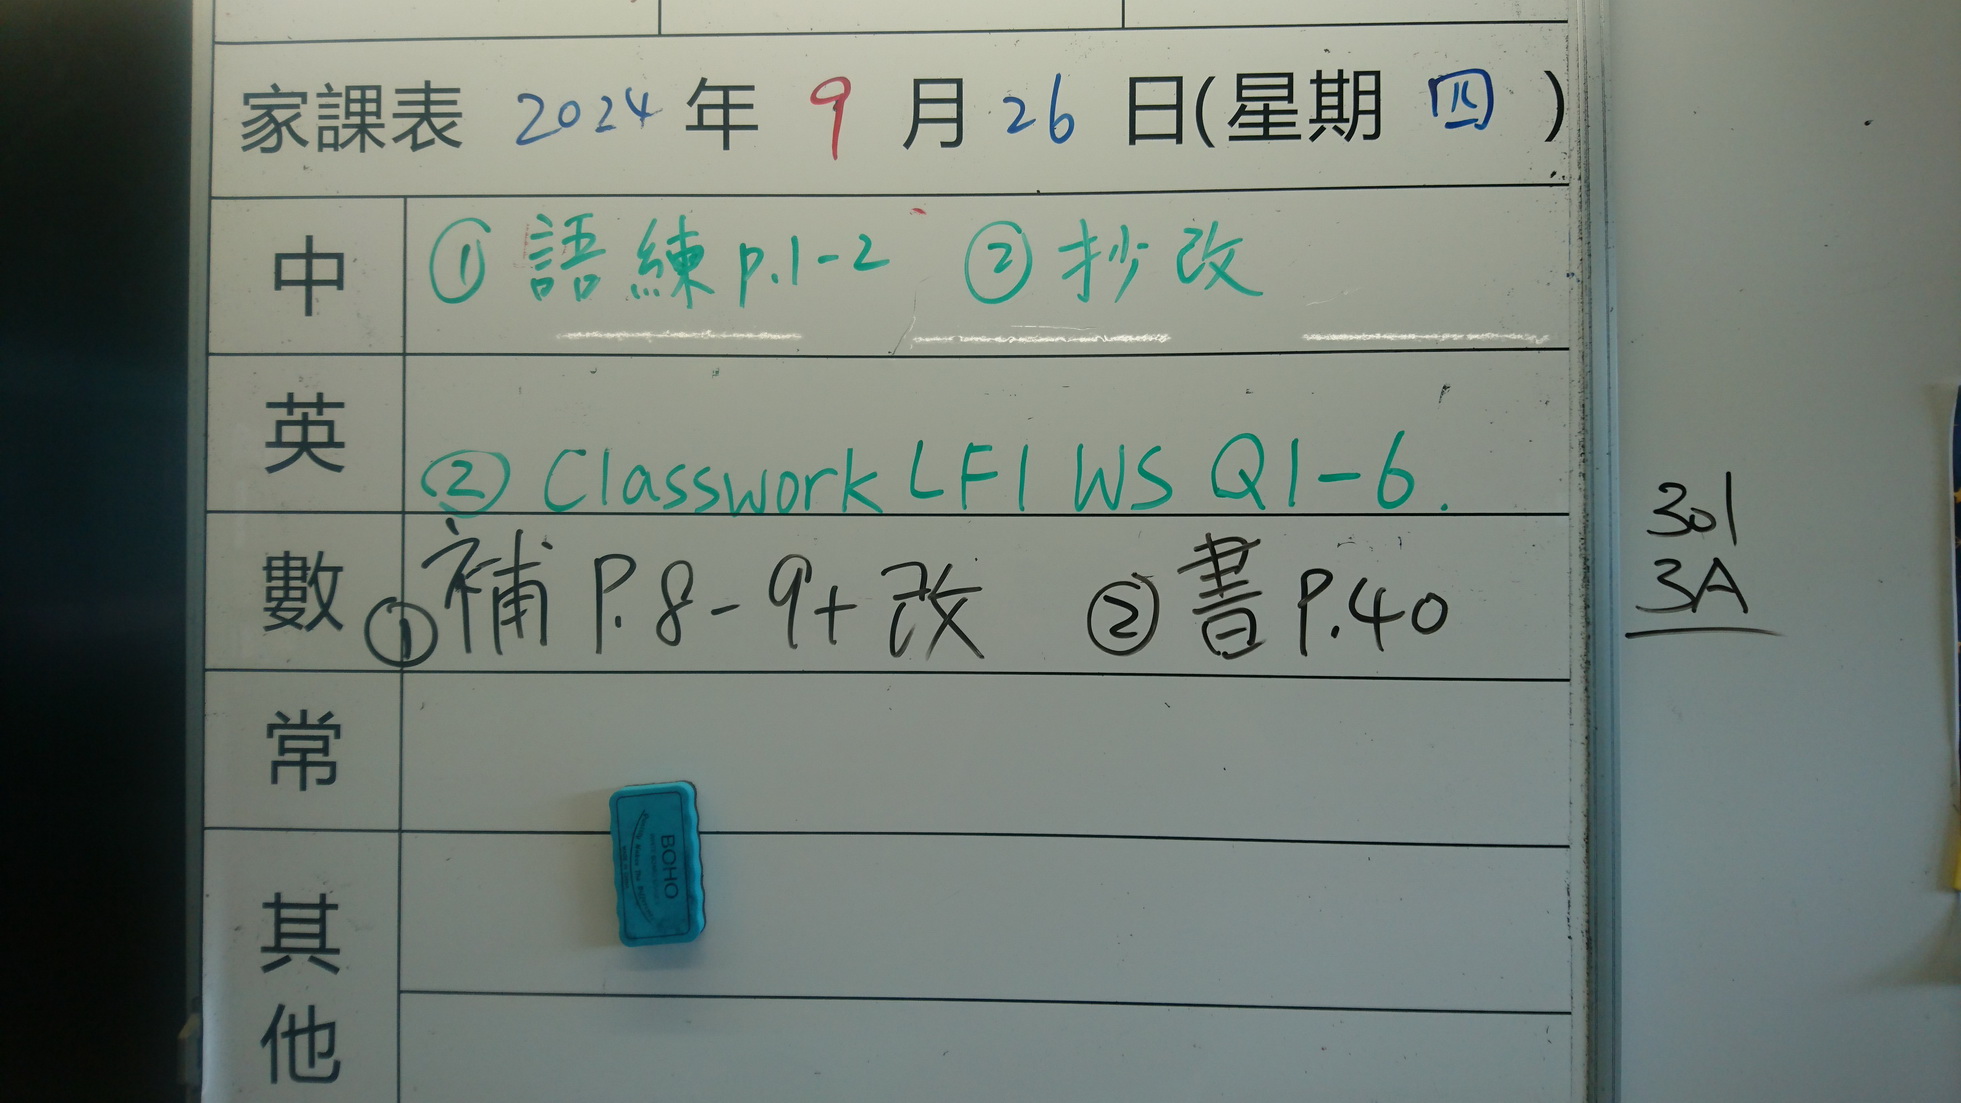 家課表 2024 年 9 月 26 日(星期 四 )
中 ① 語練 p.1-2 ② 抄改
英 ② Classwork LF1 WS Q1-6.
數 ① 補 P.8-9+改 ② 書 P.40
常
其他
301
3A
BOHO